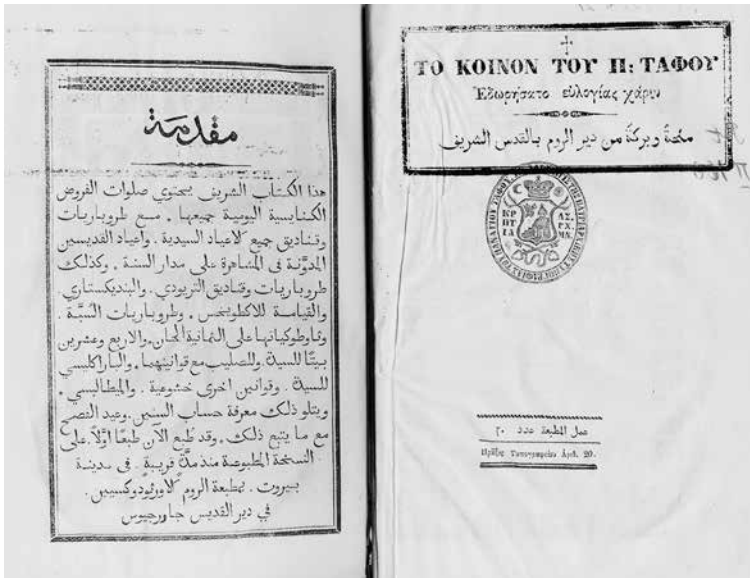 مقدمة
هذا الكتاب الشريف يحتوي صلوات الفروض
الكنايسية اليومية جميعها . مع طروباريات
وقناديق جميع الاعياد السيدية . واعياد القديسين
المدوَّنة في المشاهرة على مدار السنة . وكذلك
طروباريات وقناديق التريودي . والبنديكستاري
والقيامة للاكطوينخس . وطروباريات السُبَّة .
وثاوطوكياتها على الثمانية الحان . والاربع وعشرين
بيتًا للسيدة . وللصليب مع قوانينهما . والباراكليسي
للسيدة . وقوانين اخرى خشوعية . والميطاليسي .
ويتلو ذلك معرفة حساب السنين . وعيد الفصح
مع ما يتبع ذلك . وقد طُبع الآن طبعًا اوّلاً على
النسخة المطبوعة منذ مدَّة قريبة . في مدينة
بيروت . بمطبعة الروم الاورثوذوكسيين .
في دير القديس جاورجيوس
ΤΟ ΚΟΙΝΟΝ ΤΟΥ Π: ΤΑΦΟΥ
Ἐδωρήσατο εὐλογίας χάριν
منحةً وبركةً من دير الروم بالقدس الشريف
ΚΡ ΑΣ
ΠΤ ΡΧ
ΙΑ ΜΝ
عمل المطبعة عدد ٢٠
Πρᾶξις Τυπογραφείου Ἀριθ. 20.